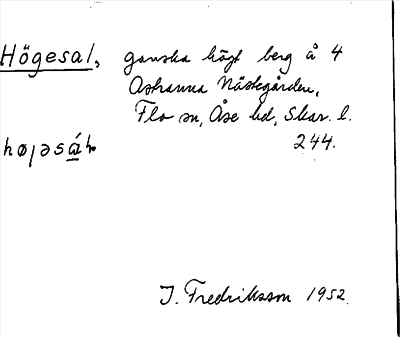 Högesal, ganska högt berg å 4
Östranna Nästegården,
Flo sn, Åse hd, Skar. l.
højəsá̱ɫ 244.
I. Fredriksson 1952.